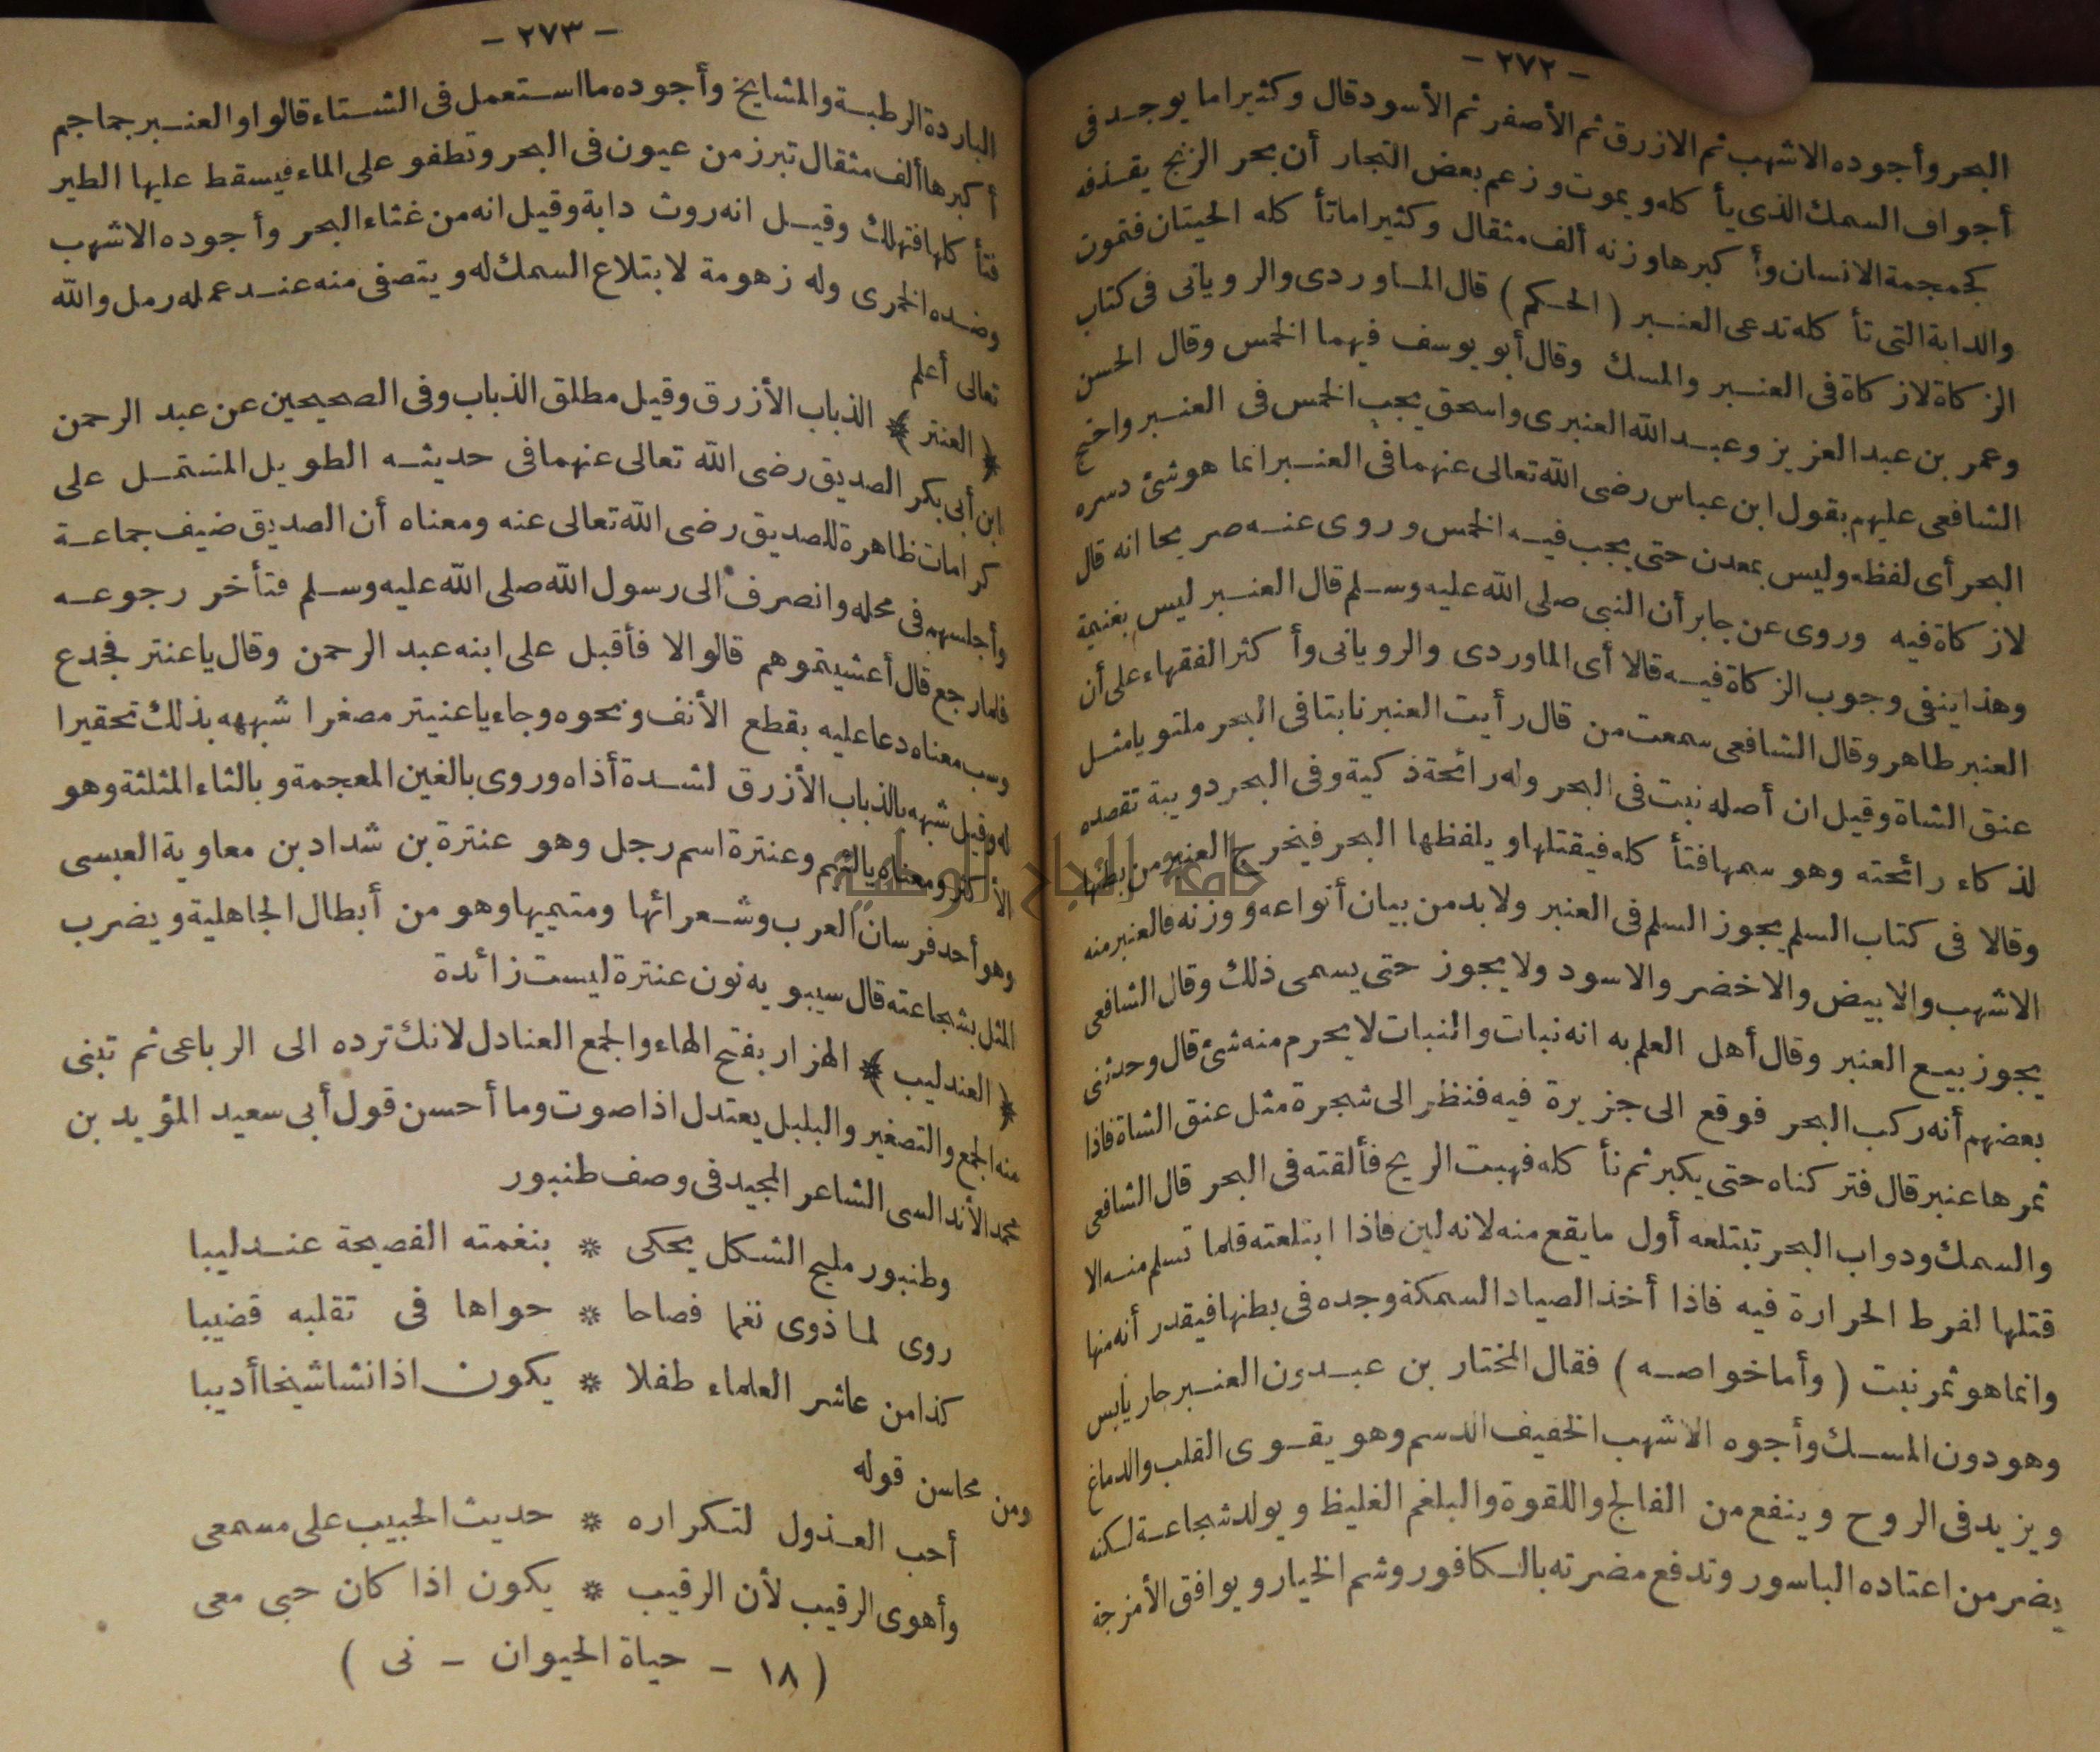 - ٢٧٢ -
البحر وأجوده الاشهب ثم الازرق ثم الأصفر ثم الأسود قال وكثيرا ما يوجد فى
أجواف السمك الذى يأ كله ويموت وزعم بعض التجار أن بحر الزنج يقذفه
كجمجمة الانسان وأ كبرها وزنه ألف مثقال وكثيرا ما تأ كله الحيتان فتموت
والدابة التى تأ كله تدعى العنبر ( الحكم ) قال الماوردى والرويانى فى كتاب
الزكاة لا زكاة فى العنبر والمسك وقال أبو يوسف فيهما الخمس وقال الحسن
وعمر بن عبد العزيز وعبد الله العنبرى واسحق يجب الخمس فى العنبر واحتج
الشافعى عليهم بقول ابن عباس رضى الله تعالى عنهما فى العنبر انما هو شئ دسره
البحر أى لفظه وليس بمعدن حتى يجب فيه الخمس وروى عنه صريحا انه قال
لا زكاة فيه وروى عن جابر أن النبى صلى الله عليه وسلم قال العنبر ليس بغنيمة
وهذا ينفى وجوب الزكاة فيه قالا أى الماوردى والرويانى وأ كثر الفقهاء على أن
العنبر طاهر وقال الشافعى سمعت من قال رأيت العنبر نابتا فى البحر ملتويا مثل
عنق الشاة وقيل ان أصله نبت فى البحر وله رائحة ذكية وفى البحر دويبة تقصده
لذكاء رائحته وهو سمها فتأ كله فيقتلها ويلفظها البحر فيخرج العنبر من بطنها
وقالا فى كتاب السلم يجوز السلم فى العنبر ولا بد من بيان أنواعه ووزنه فالعنبر منه
الاشهب والابيض والاخضر والاسود ولا يجوز حتى يسمى ذلك وقال الشافعى
يجوز بيع العنبر وقال أهل العلم به انه نبات والنبات لا يحرم منه شئ قال وحدثنى
بعضهم أنه ركب البحر فوقع الى جزيرة فيه فنظر الى شجرة مثل عنق الشاة فاذا
ثمرها عنبر قال فتركناه حتى يكبر ثم نأ كله فهبت الريح فألقته فى البحر قال الشافعى
والسمك ودواب البحر تبتلعه أول ما يقع منه لانه لين فاذا ابتلعته قلما تسلم منه الا
قتلها لفرط الحرارة فيه فاذا أخذ الصياد السمكة وجده فى بطنها فيقدر أنه منها
وانما هو ثمر نبت ( وأما خواصه ) فقال المختار بن عبدون العنبر حار يابس
وهو دون المسك وأجوه الاشهب الخفيف الدسم وهو يقوى القلب والدماغ
ويزيد فى الروح وينفع من الفالج واللقوة والبلغم الغليظ ويولد شجاعة لكنه
يضر من اعتاده الباسور وتدفع مضرته بالكافور وشم الخيار ويوافق الأمزجة
- ٢٧٣ -
الباردة الرطبة والمشايخ وأجوده ما استعمل فى الشتاء قالوا والعنبر جماجم
أكبرها ألف مثقال تبرز من عيون فى البحر وتطفو على الماء فيسقط عليها الطير
فتأ كلها فتهلك وقيل انه روث دابة وقيل انه من غثاء البحر وأجوده الاشهب
وضده الخمرى وله زهومة لابتلاع السمك له ويتصفى منه عند عمله رمل والله
تعالى أعلم
﴿ العنتر ﴾ الذباب الأزرق وقيل مطلق الذباب وفى الصحيحين عن عبد الرحمن
ابن أبى بكر الصديق رضى الله تعالى عنهما فى حديثه الطويل المشتمل على
كرامات ظاهرة للصديق رضى الله تعالى عنه ومعناه أن الصديق ضيف جماعة
وأجلسهم فى محله وانصرف الى رسول الله صلى الله عليه وسلم فتأخر رجوعه
فلما رجع قال أعشيتموهم قالوا لا فأقبل على ابنه عبد الرحمن وقال يا عنتر فجدع
وسب معناه دعا عليه بقطع الأنف ونحوه وجاء يا عنيتر مصغرا شبهه بذلك تحقيرا
له وقيل شبهه بالذباب الأزرق لشدة أذاه وروى بالغين المعجمة وبالثاء المثلثة وهو
ومعناه يا لئيم وعنترة اسم رجل وهو عنترة بن شداد بن معاوية العبسى
وهو أحد فرسان العرب وشعرائها ومتميها وهو من أبطال الجاهلية ويضرب
المثل بشجاعته قال سيبويه نون عنترة ليست زائدة
﴿ العندليب ﴾ الهزار بفتح الهاء والجمع العنادل لانك ترده الى الرباعى ثم تبنى
منه الجمع والتصغير والبلبل يعتدل اذا صوت وما أحسن قول أبى سعيد المؤيد بن
محمد الأندالسى الشاعر المجيد فى وصف طنبور
وطنبور مليح الشكل يحكى * بنغمته الفصيحة عندليبا
روى لما ذوى نغما فصاحا * حواها فى تقلبه قضيبا
كذا من عاشر العلماء طفلا * يكون اذا نشا شيخا أديبا
ومن محاسن قوله
أحب العذول لتكراره * حديث الحبيب على مسمعى
وأهوى الرقيب لأن الرقيب * يكون اذا كان حبى معى
( ١٨ - حياة الحيوان - نى )
جامعة النجاح الوطنية